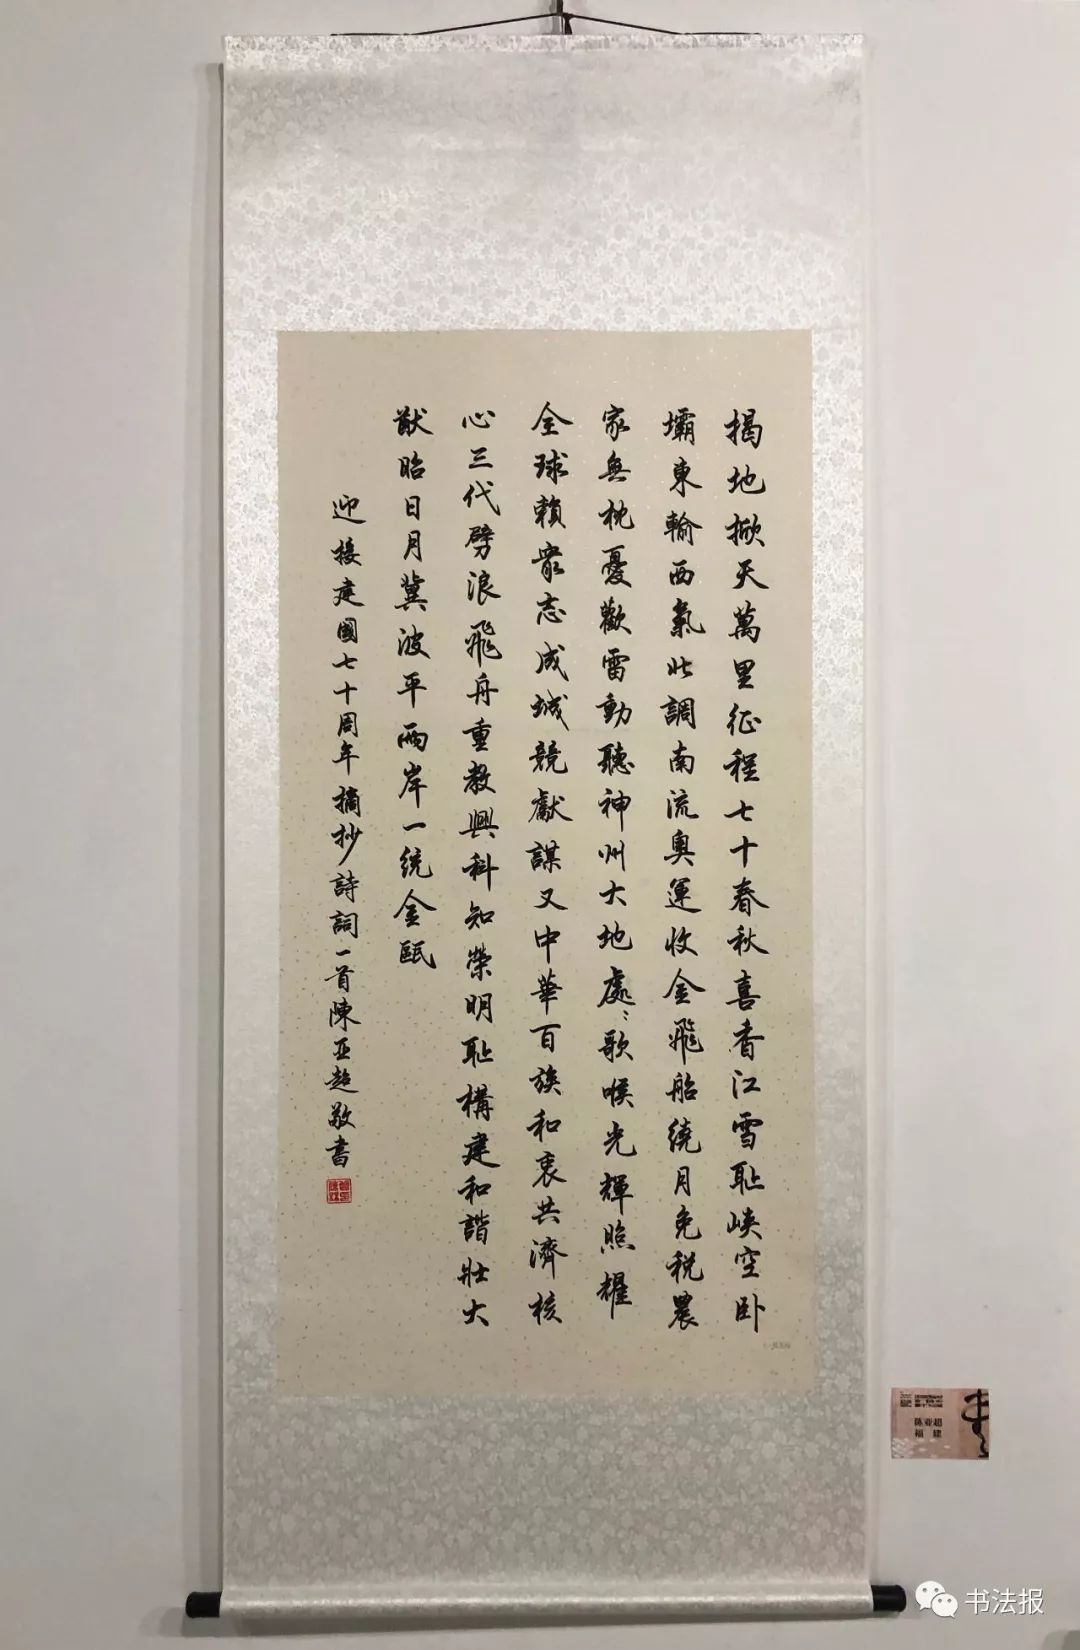 揭地掀天萬里征程七十春秋喜香江雪耻峽空卧
壩東輸西氣北調南流奥運收金飛船繞月免税農
家無枕憂歡雷動聽神州大地處〻歌喉光輝照耀
全球賴衆志成城競獻謀又中華百族和衷共濟核
心三代劈浪飛舟重教興科知榮明耻構建和諧壯大
猷昭日月冀波平兩岸一統金甌
迎接建國七十周年摘抄詩詞一首陳亚超敬書
陈亚超
福建
书法报